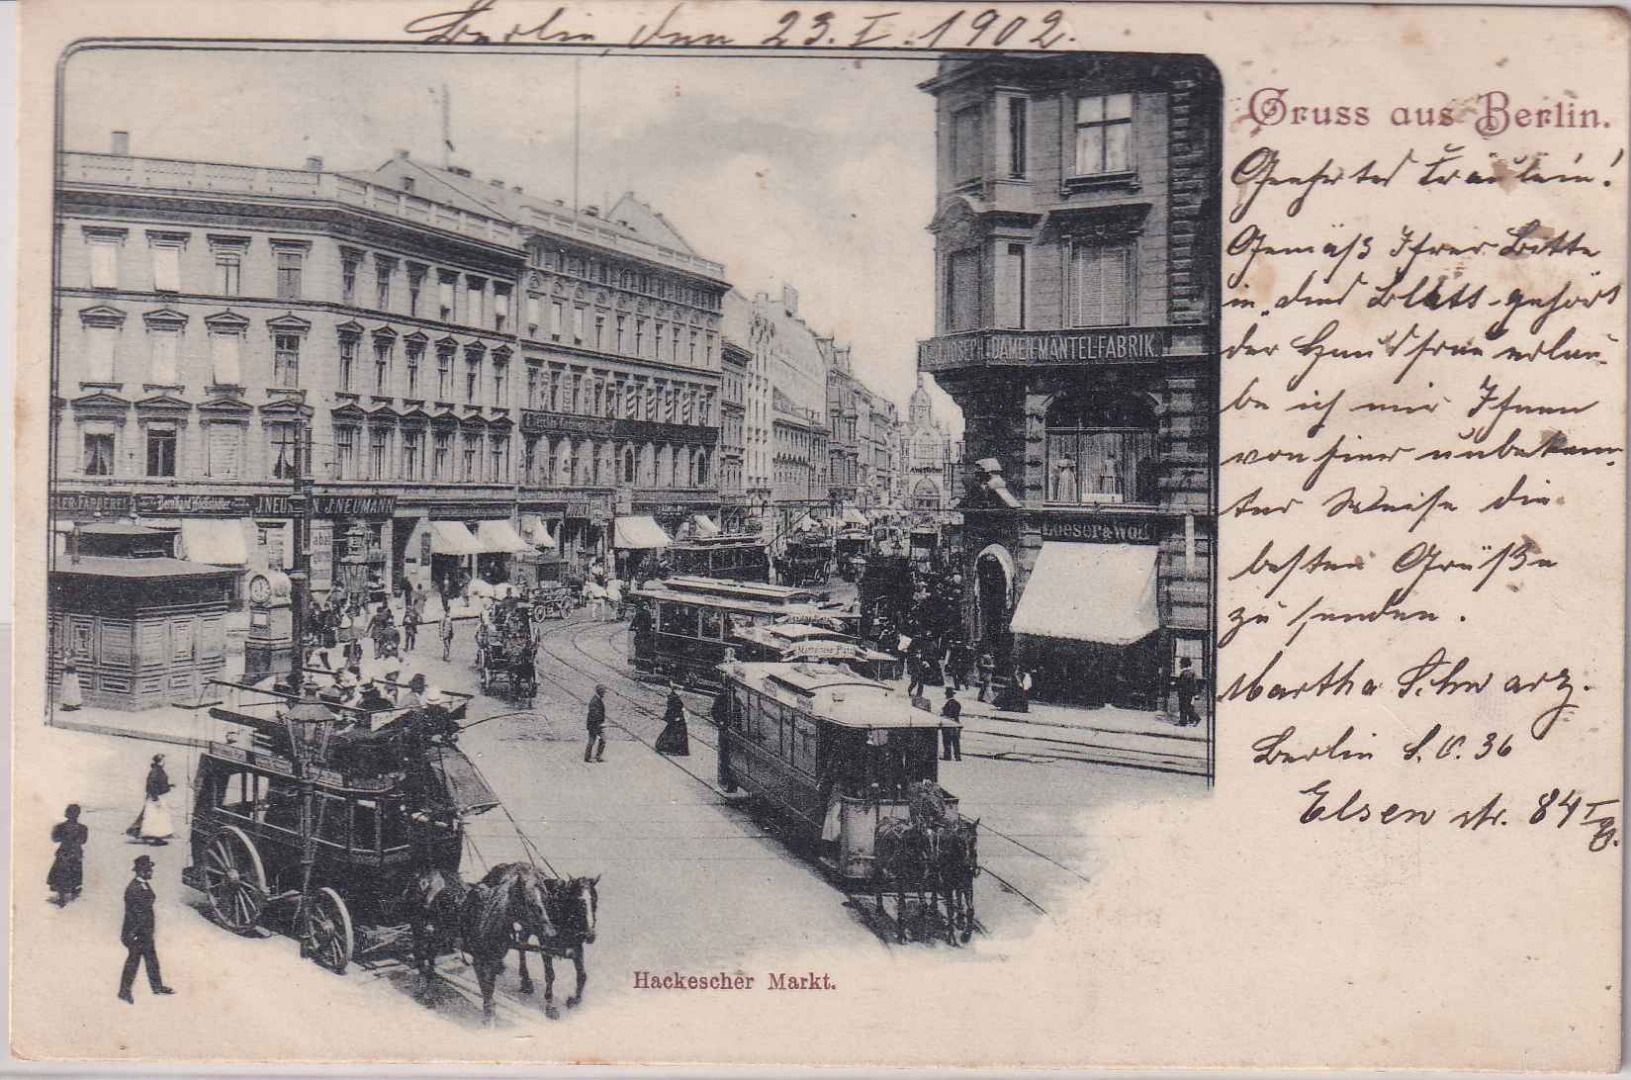 Berlin, den 23. I. 1902.
Gruss aus Berlin.
Geehrtes Fräulein!
Gemäß Ihrer Bitte
in „dies Blatt gehört
der Hausfrau erlau-
be ich mir Ihnen
von hier unbekann-
ter Weise die
besten Grüße
zu senden.
Martha Schwarz.
Berlin S.O. 36
Elsen str. 84 I
JOSEPH DAMEN-MÄNTEL-FABRIK.
J. NEUMANN
Loeser & Wolf
Hackescher Markt.